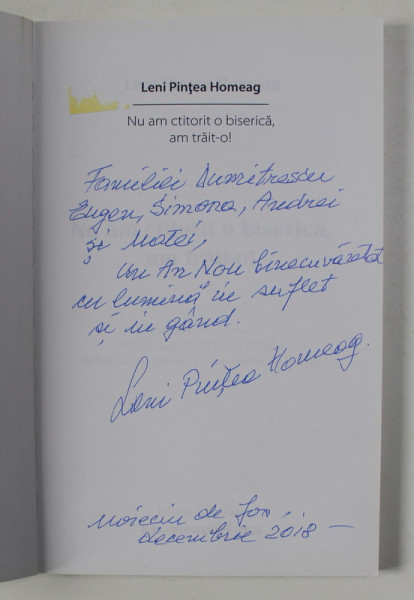 Leni Pințea Homeag
Nu am ctitorit o biserică,
am trăit-o!
Familiei Dumitrescu
Eugen, Simona, Andrei
și Matei,
Un An Nou binecuvântat
cu lumină în suflet
și în gând.
Leni Pințea Homeag.
Moieciu de Jos,
decembrie 2018 –